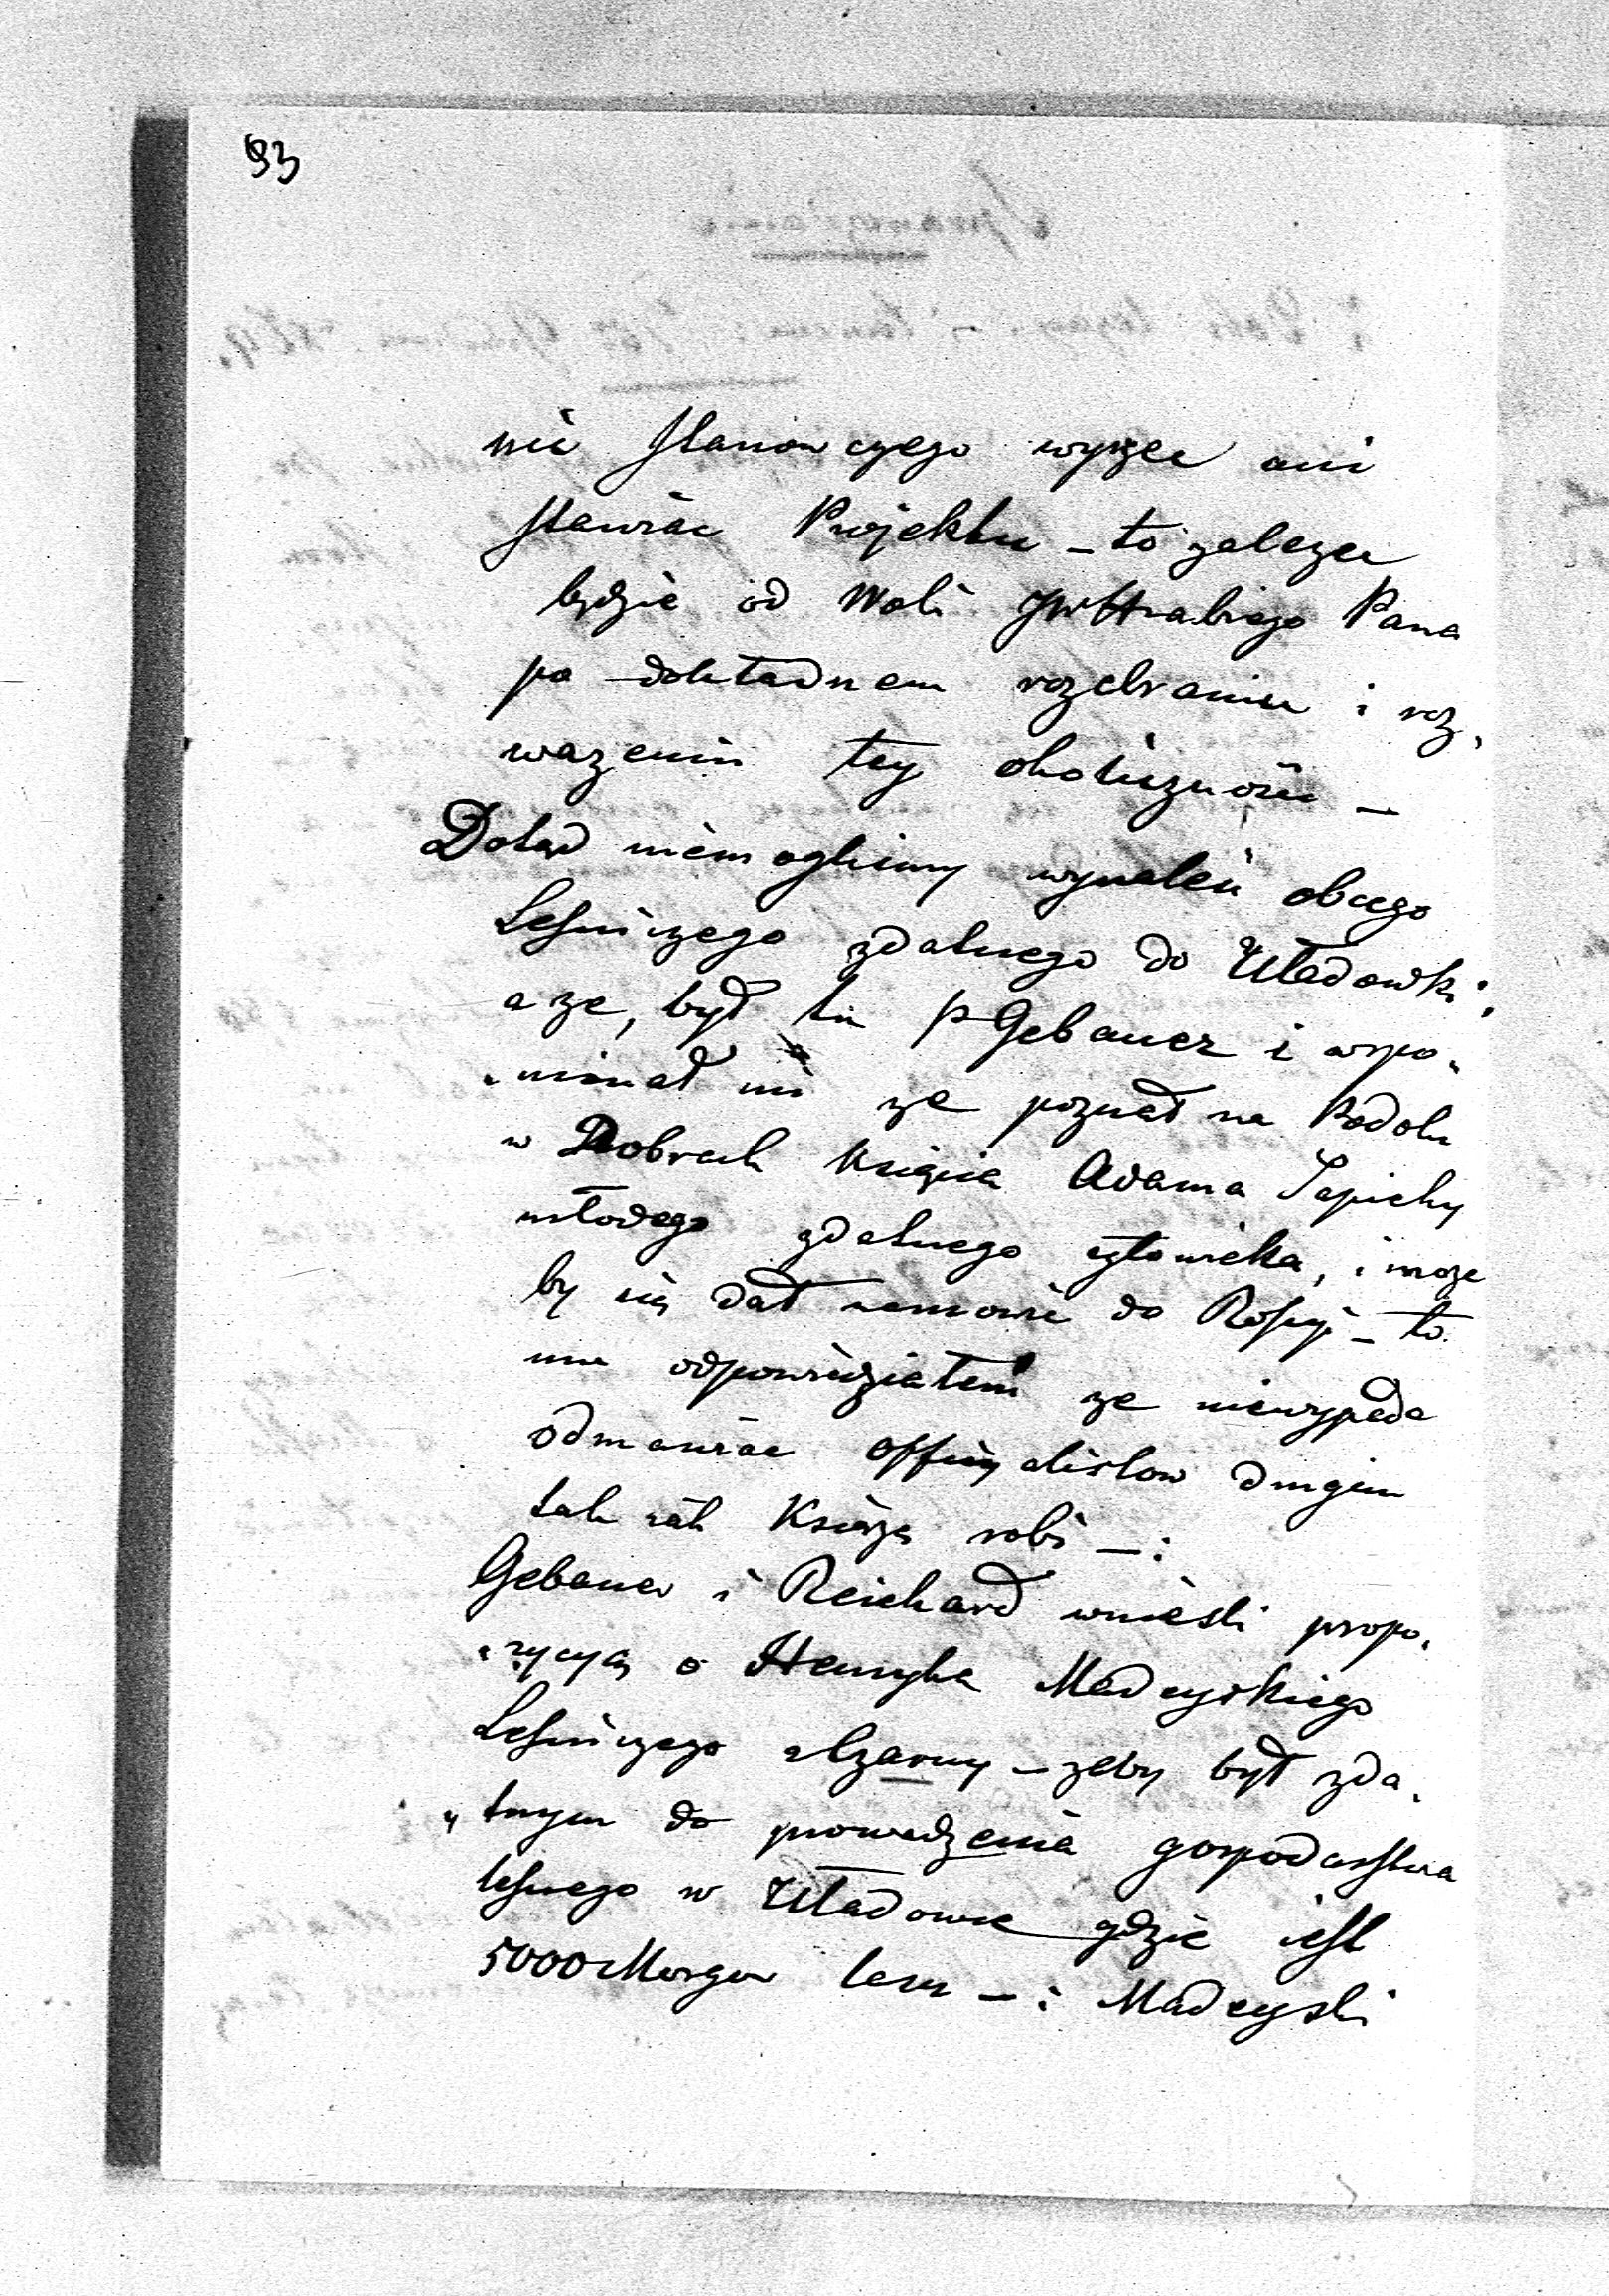 93
nic stanowczego wyrzec ani
stawiać Projektu - to zalezec
będzie od Woli JWHrabiego Pana
po dokładnem rozebraniu i roz,
ważeniu tey okoliczności -
Dotąd niemogliśmy wynaleść obcego
Leśniczego zdatnego do Uładowki,
a że, był tu P Gebauer i wspo„
„minał mi że poznał na Podolu
w Dobrach Księcia Adama Sapiehy
młodego zdatnego człowieka, i może
by się dał namowić do Rossyi - to
mu odpowiedziałem że niewypada
odmawiać officyalistow drugim
tak jak Książe robi -:
Gebauer i Reichard wnieśli propo„
„zycyą o Henryka Madeyskiego
Leśniczego z Czarny - żeby był zda„
„tnym do prowadzenia gospodarstwa
leśnego w Uładowce gdzie jest
5000 Morgow lasu -: Madeyski